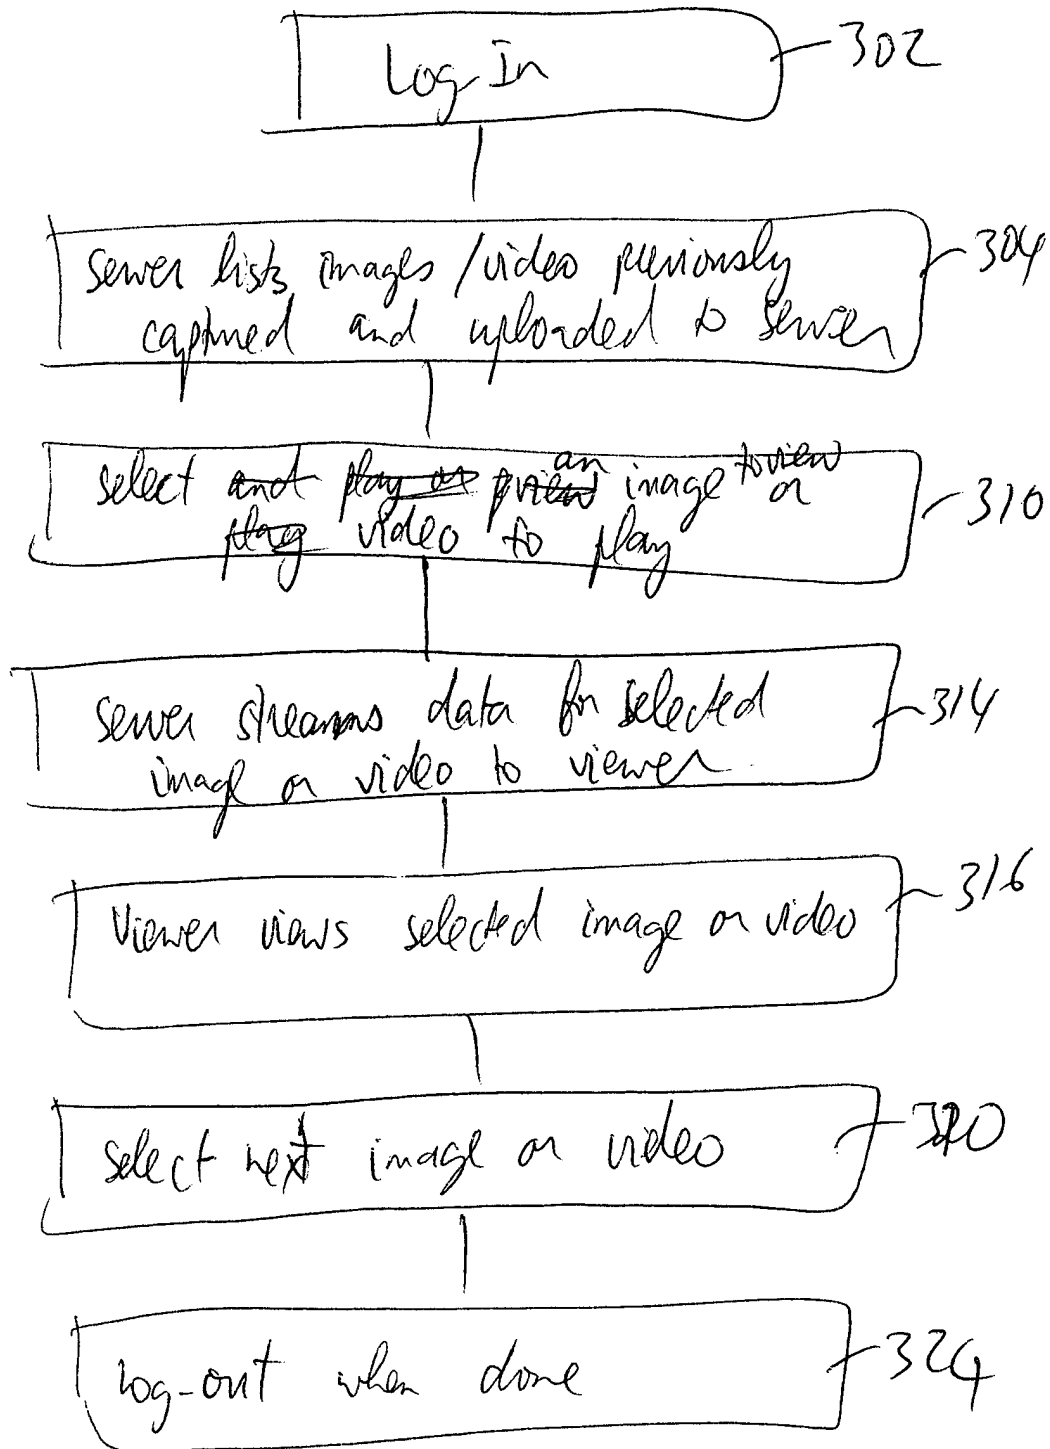 Log-In
302
server lists images / video previously
captured and uploaded to server
304
select and play or preview an image to view or
play video to play
310
server streams data for selected
image or video to viewer
314
Viewer views selected image or video
316
select next image or video
320
log-out when done
324